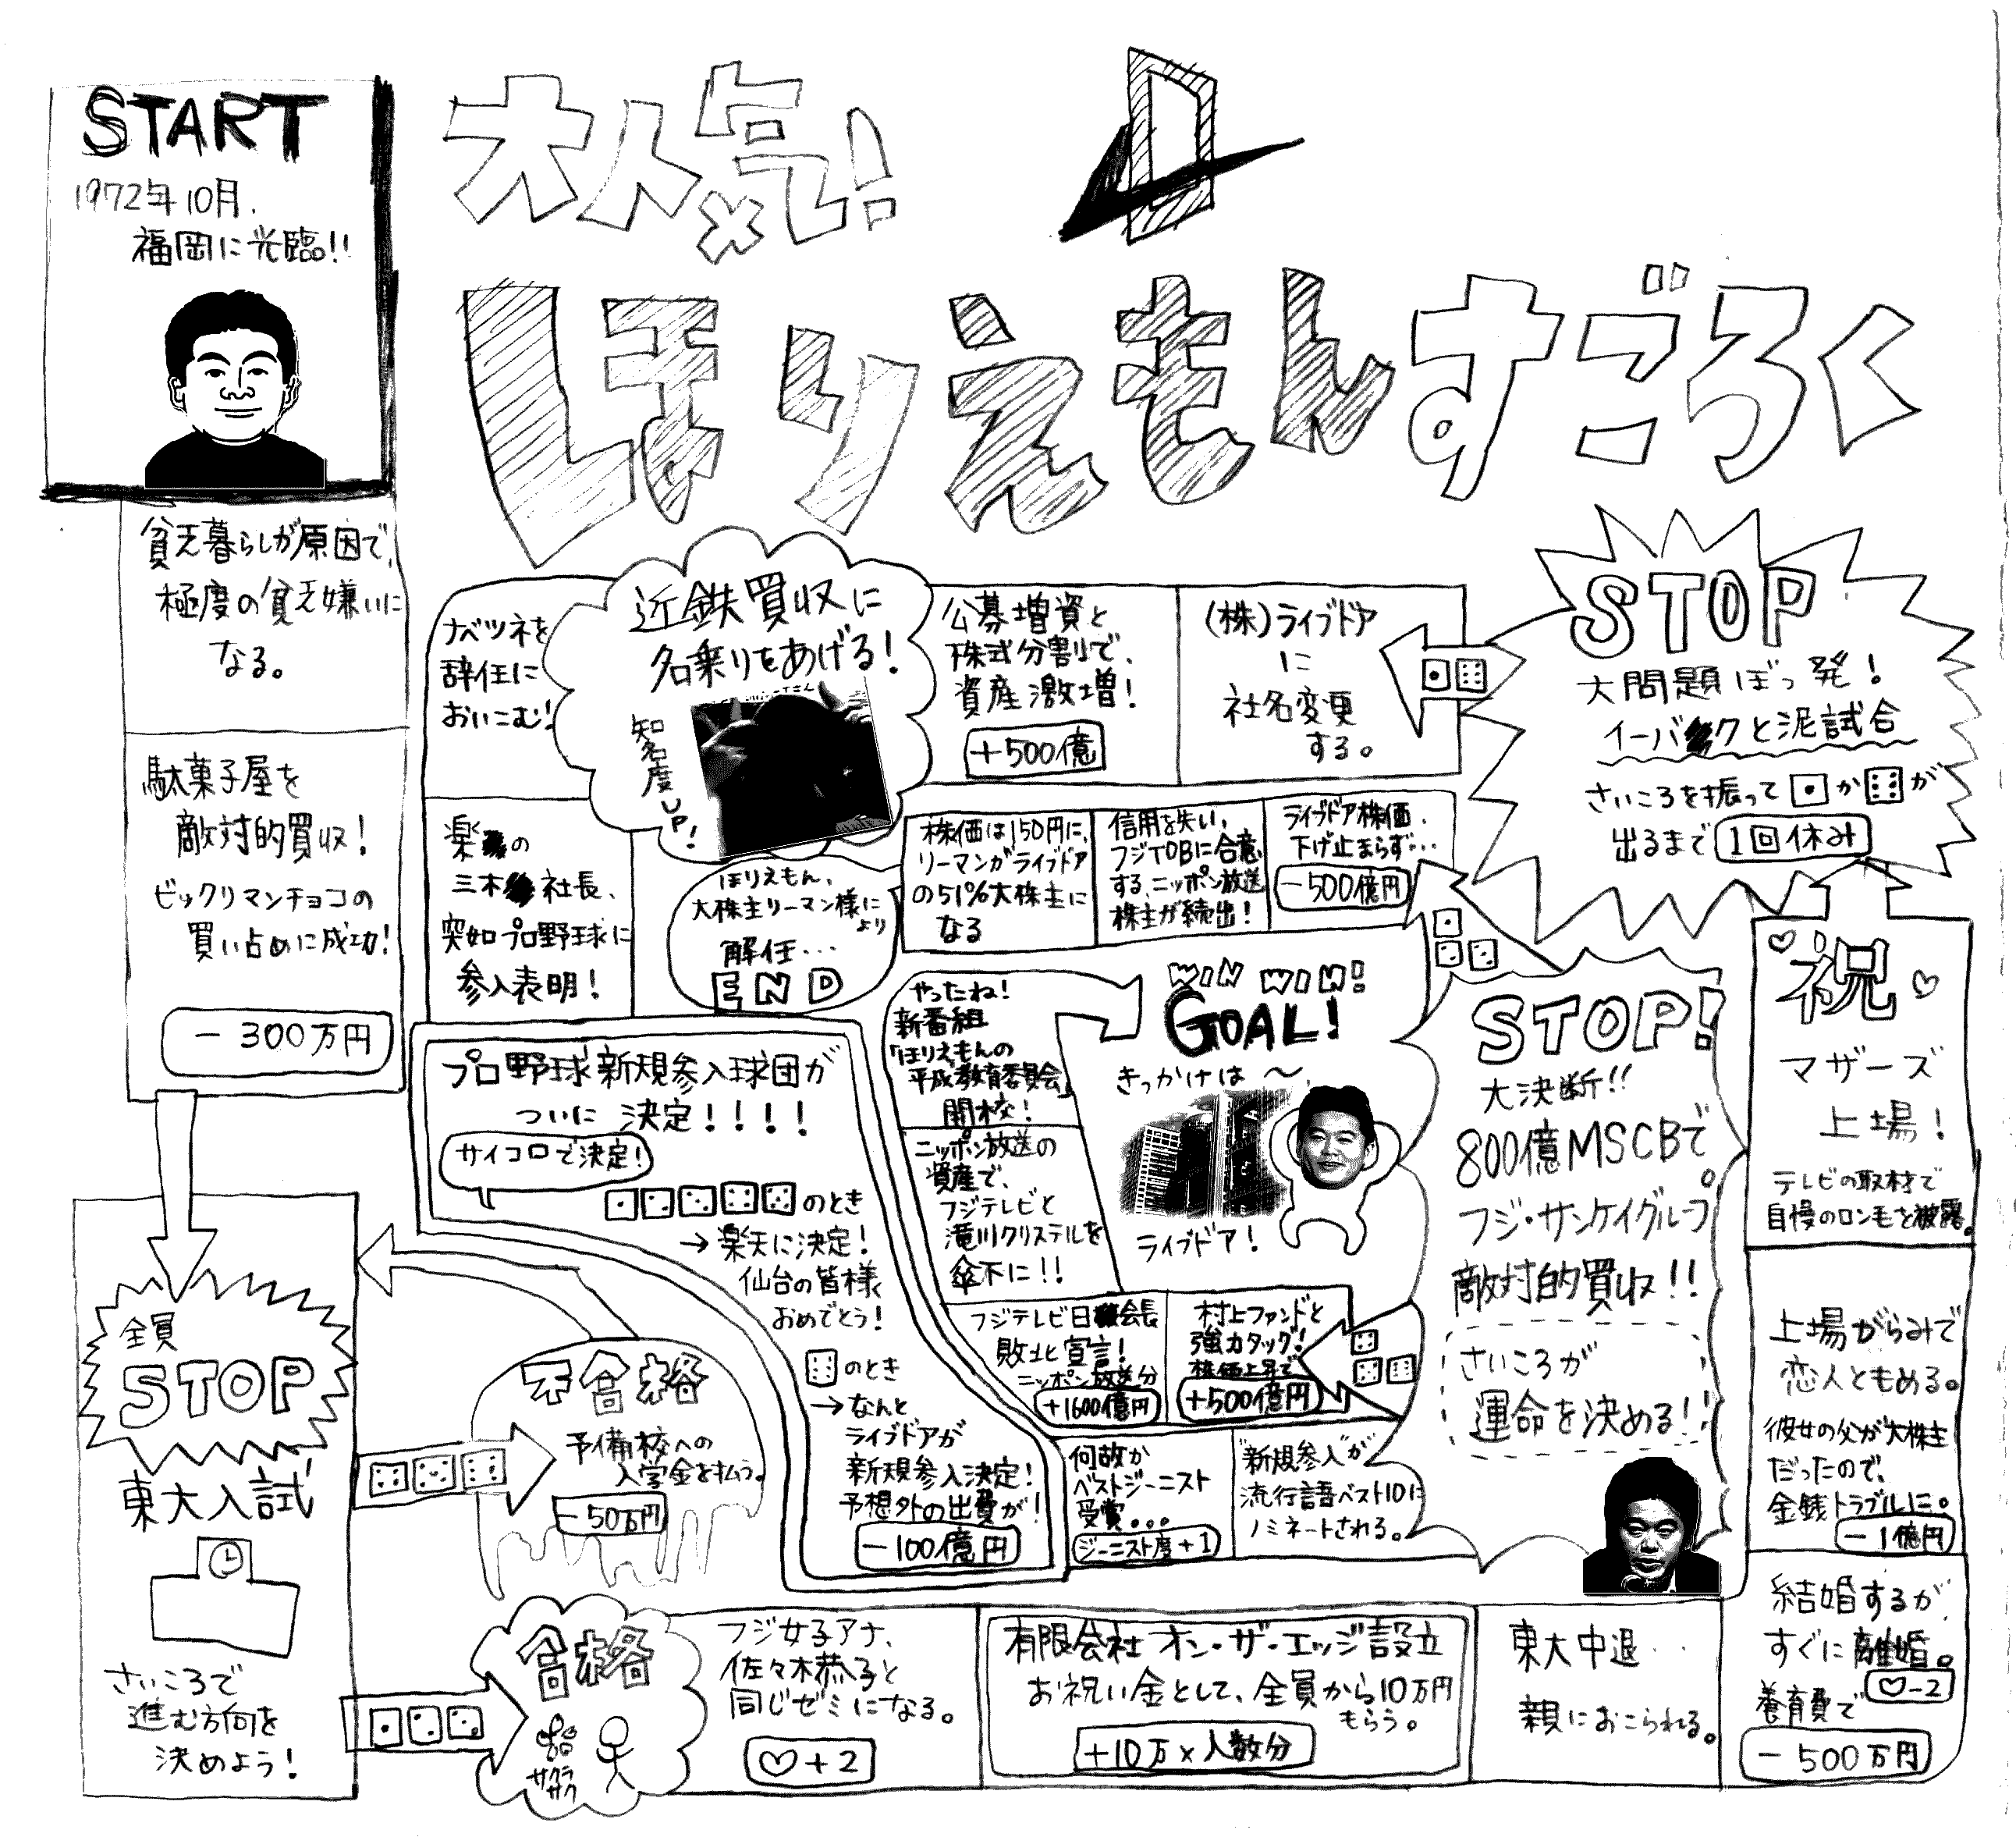 大人気!
ほりえもんすごろく
START
1972年10月.
福岡に光臨!!
貧乏暮らしが原因で、
極度の貧乏嫌いに
なる。
駄菓子屋を
敵対的買収!
ビックリマンチョコの
買い占めに成功!
-300万円
全員
STOP
東大入試
さいころで
進む方向を
決めよう!
不合格
予備校への
入学金を払う。
-50万円
合格
サクラ
サク
フジ女子アナ、
佐々木恭子と
同じゼミになる。
♡+2
有限会社 オン・ザ・エッジ設立
お祝い金として、全員から10万円
もらう。
+10万×人数分
東大中退‥
親におこられる。
結婚するが、
すぐに離婚。
♡-2
養育費で
-500万円
上場がらみで
恋人ともめる。
彼女の父が大株主
だったので、
金銭トラブルに。
-1億円
♡祝♡
マザーズ
上場!
テレビの取材で
自慢のロン毛を披露。
STOP
大問題ぼっ発!
イーバンクと泥試合
さいころを振って⚀か⚅が
出るまで 1回休み
(株)ライブドア
に
社名変更
する。
公募増資と
株式分割で、
資産激増!
+500億
近鉄買収に
名乗りをあげる!
知名度UP!
ナベツネを
辞任に
おいこむ!
楽 の
三木 社長、
突如プロ野球に
参入表明!
プロ野球新規参入球団が
ついに 決定!!!!
サイコロで決定!
のとき
→楽天に決定!
仙台の皆様
おめでとう!
のとき
→なんと
ライブドアが
新規参入決定!
予想外の出費が!
-100億円
何故か
ベストジーニスト
受賞...
ジーニスト度+1
"新規参入"が
流行語ベスト10に
ノミネートされる。
STOP!
大決断!!
800億MSCBで
フジ・サンケイグループ
敵対的買収!!
さいころが
運命を決める!!
ライブドア株価、
下げ止まらず…
-500億円
信用を失い、
フジTOBに合意
する、ニッポン放送
株主が続出!
株価は150円に、
リーマンがライブドア
の51%大株主に
なる
ほりえもん、
大株主リーマン様に
より
解任...
END
村上ファンドと
強力タッグ!
株価上昇で
+500億円
フジテレビ日 会長
敗北宣言!
ニッポン放送分
+1600億円
ニッポン放送の
資産で、
フジテレビと
滝川クリステルを
傘下に!!
やったね!
新番組
「ほりえもんの
平成教育委員会」
開校!
WIN WIN!
GOAL!
きっかけは〜
ライブドア!